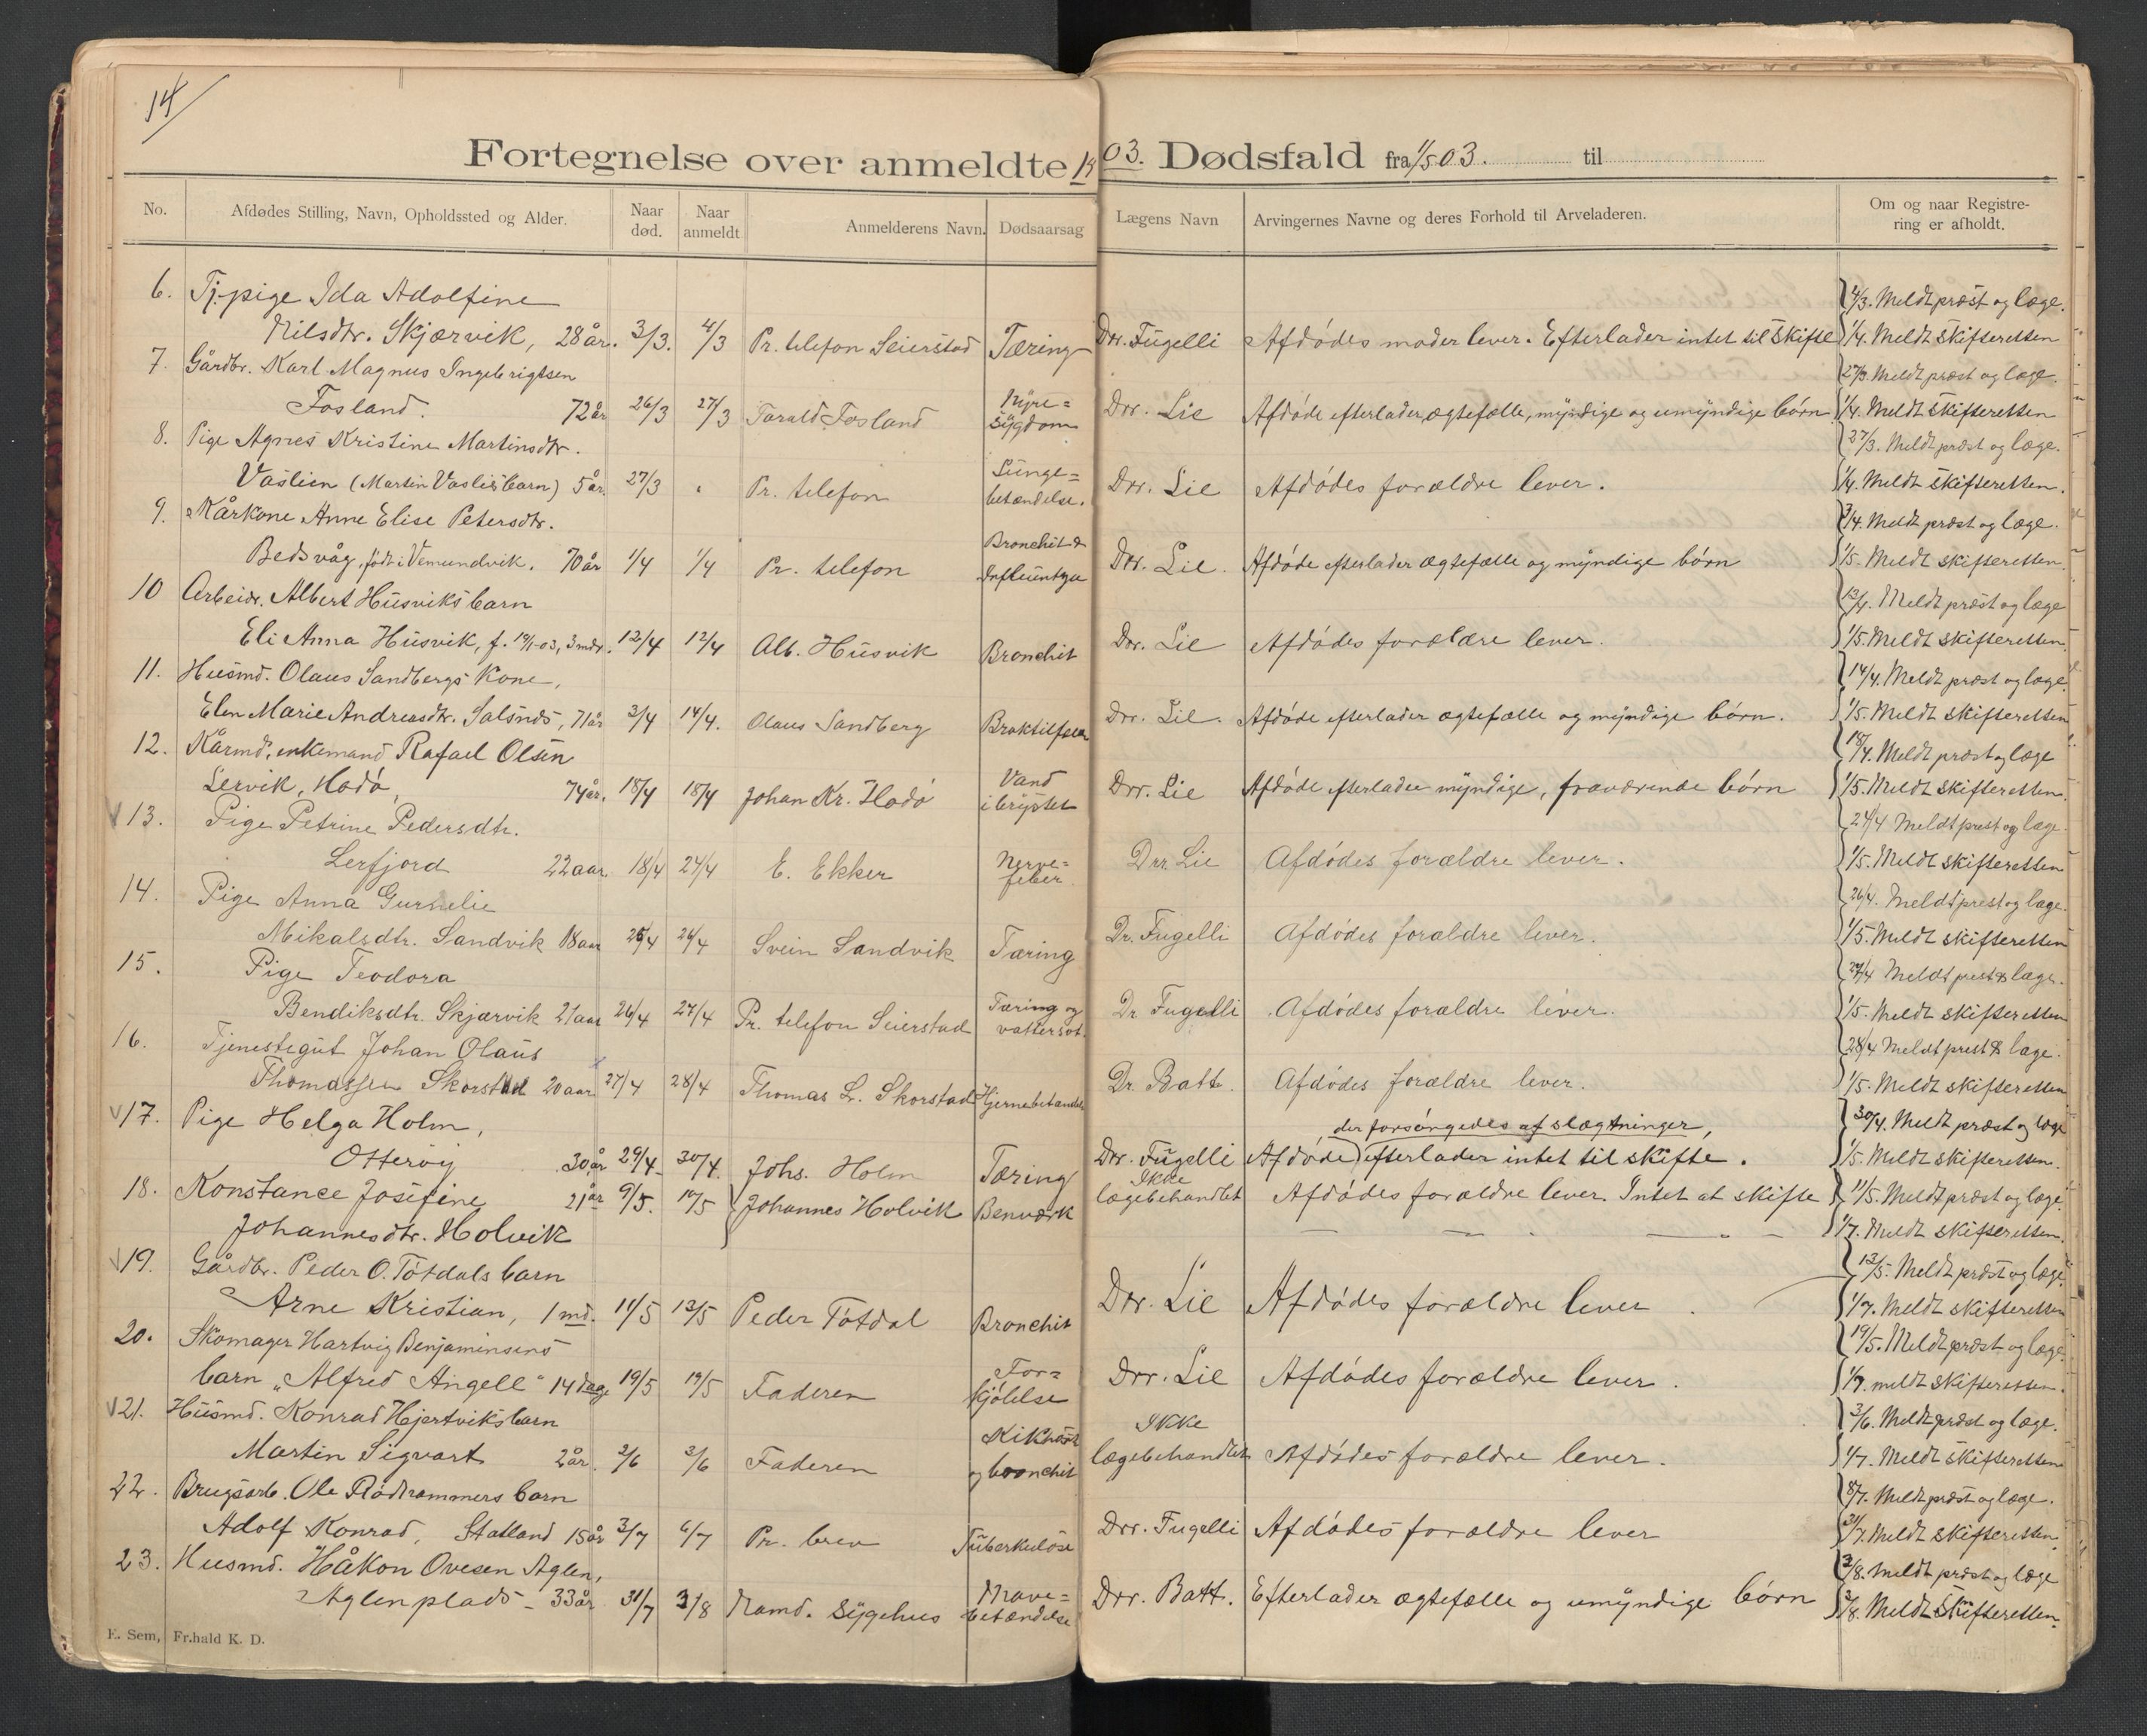 14
Fortegnelse over anmeldte 1903. Dødsfald fra 1/5 03. til
No. Afdødes Stilling, Navn, Opholdssted og Alder. Naar død. Naar anmeldt Anmelderens Navn. Dødsaarsag Lægens Navn Arvingernes Navne og deres Forhold til Arveladeren. Om og naar Registrering er afholdt.
6. Tj.pige Ida Adolfine 4/3. Meldt præst og læge.
Nilsdtr. Skjærvik, 28 år. 3/3. 4/3 Pr. telefon Seierstad Tæring Drr. Fugelli Afdødes moder lever. Efterlader intet til skifte 1/4. Meldt skifteretten
7. Gårdbr. Karl Magnus Ingebrigtsen 27/3. Meldt præst og læge.
Fosland. 72 år 26/3 27/3 Tarald Fosland Nyre=sygdom Drr. Lie Afdøde efterlader ægtefælle, myndige og umyndige børn 1/4. Meldt skifteretten
8. Pige Agnes Kristine Martinsdtr. 27/3. Meldt præst og læge.
Vaslien (Martin Vasliesbarn) 5 år. 27/3 " Pr. telefon Lunge=betændelse. Drr. Lie Afdødes forældre lever. 1/4. Meldt skifteretten.
9. Kårkone Anne Elise Petersdtr. 3/4. Meldt præst og læge.
Bedsvåg, født i Vemundvik. 70 år 1/4 1/4 Pr. telefon Bronchit & Influentza Drr. Lie. Afdøde efterlader ægtefælle og myndige børn 1/5. Meldt skifteretten.
10 Arbeidr. Albert Husviks barn 13/4. Meldt præst og læge
Eli Anna Husvik, f. 19/1-03, 3 mdr. 12/4 12/4 Alb. Husvik Bronchit Drr. Lie Afdødes forældre lever. 1/5. Meldt skifteretten.
11. Husmd. Olaus Sandbergs kone, 14/4. Meldt præst og læge.
Elen Marie Andreasdtr. Salsnes, 71 år 3/4 14/4. Olaus Sandberg Braktilfælde Drr. Lie. Afdøde efterlader ægtefælle og myndige børn. 1/5. Meldt skifteretten
12. Kårmd. enkemand Rafael Olsen 18/4. Meldt præst og læge
Lervik, Hodø, 74 år. 18/4 18/4 Johan Kr. Hodø Vand i brystet Drr. Lie Afdøde efterlader myndige, fraværende børn 1/5. Meldt skifteretten.
13. Pige Petrine Pedersdtr. 24/4 Meldt prest og læge.
Lerfjord 22 aar. 18/4 24/4 E. Ekker Nerve=feber Drr. Lie Afdødes forældre lever. 1/5. Meldt skifteretten
14. Pige Anna Gurnelie 26/4. Meldt prest og læge.
Mikalsdtr. Sandvik 18 aar 25/4 26/4 Svein Sandvik Tæring Dr. Fugelli Afdødes forældre lever. 1/5. Meldt skifteretten
15. Pige Teodora 27/4 Meldt prest & læge.
Bendiksdtr. Skjærvik 21 aar 26/4 27/4 Pr. telefon Seierstad Tæring og vattersot. Dr. Fugelli Afdødes forældre lever. 1/5. Meldt skifteretten
16. Tjenestegut Johan Olaus 28/4 Meldt prest & læge.
Thomassen Skorstad 20 aar 27/4 28/4 Thomas L. Skorstad Hjernebetændelse Dr. Batt. Afdødes forældre lever. 1/5. Meldt skifteretten
17. Pige Helga Holm, der forsørgedes af slægtninger, 30/4. Meldt præst og læge
Otterøy 30 år 29/4 30/4. Johs. Holm Tæring Drr. Fugelli Afdøde efterlader intet til skifte. 1/5. Meldt skifteretten.
18. Konstance Josefine 21 år 9/5. 10/5 Johannes Holvik Benværk Ikke lægebehandlet Afdødes forældre lever. Intet at skifte 11/5. Meldt præst og læge.
Johannesdtr. Holvik 1/7. Meldt skifteretten.
19. Gårdbr. Peder O. Tøtdals barn 13/5. Meldt præst og læge.
Arne Kristian, 1 md. 11/5 13/5 Peder Tøtdal Bronchit Drr. Lie Afdødes forældre lever. 1/7. Meldt skifteretten
20. Skomager Hartvig Benjaminsens 19/5. Meldt præst og læge.
barn „Alfred Angell" 14 dage 19/5 19/5 Faderen For=kjølelse Drr. Lie Afdødes forældre lever. 1/7. meldt skifteretten.
21. Husmd. Konrad Hjertviks barn 3/6. Meldt præst og læge.
Martin Sigvart 2 år. 2/6 3/6 Faderen Kikhoste og bronchit Ikke lægebehandlet Afdødes forældre lever. 1/7. Meldt skifteretten
22. Brugsarb. Ole Rødhammers barn 8/7. Meldt præst og læge.
Adolf Konrad, Statland 15 år 3/7 6/7 Pr. brev Tuberkuløse Drr. Fugelli Afdødes forældre lever 31/7. Meldt skifteretten.
23. Husmd. Håkon Ovesen Aglen, 3/8. Meldt præst og læge
Aglen plads - 33 år 31/7 3/8 Namd. Sygehus Mave=betændelse Drr. Batt. Efterlader ægtefælle og umyndige børn 3/8. Meldt skifteretten.
E. Sem, Fr.hald K. D.